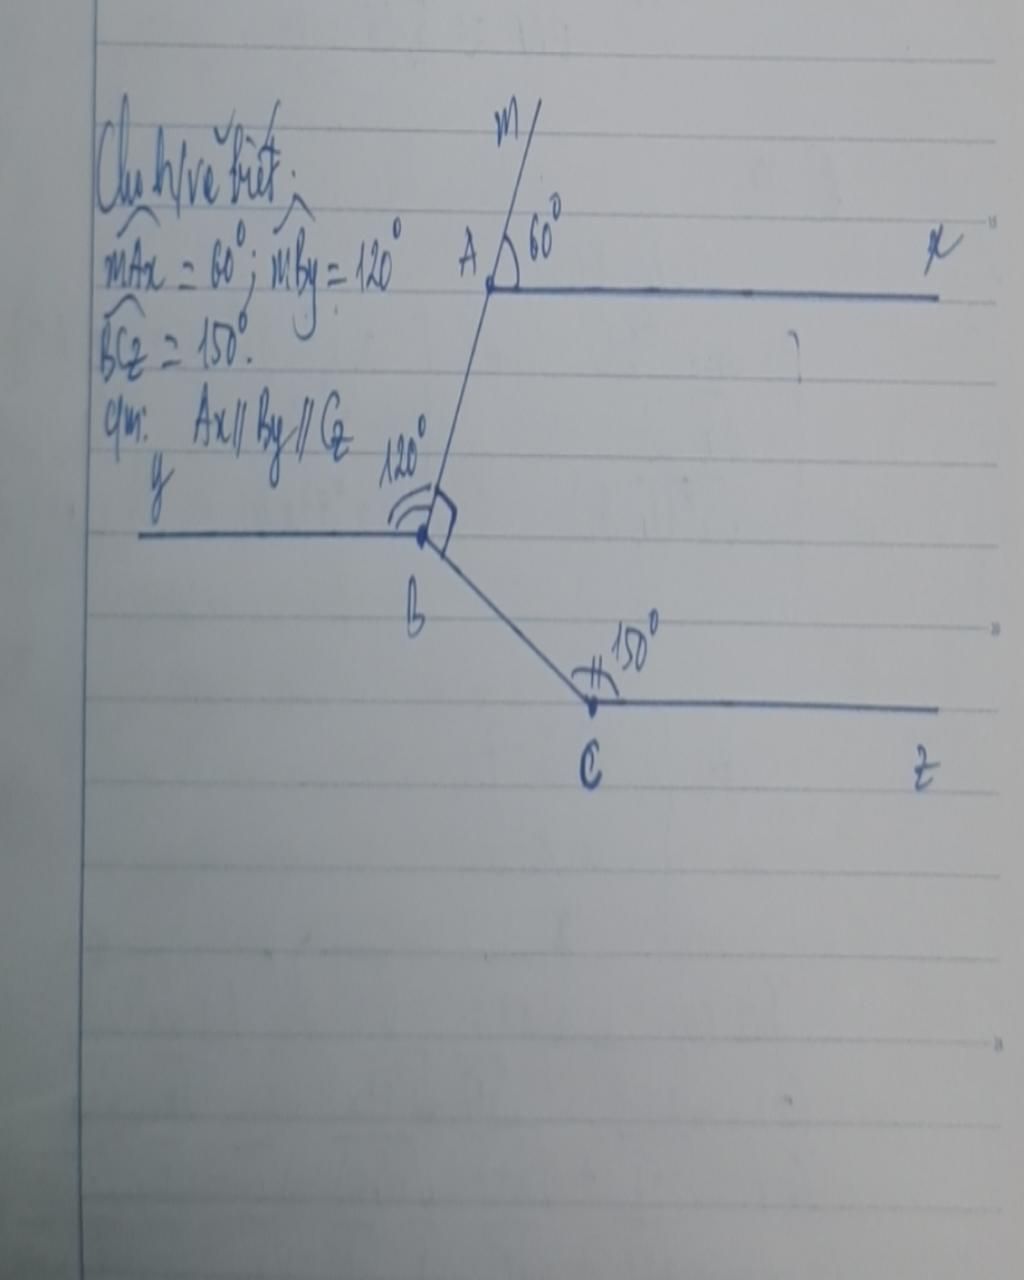 Cho h/vẽ biết:
mAx = 60°; mBy = 120°
BCz = 150°.
Ax // By // Cz
m
A 60° x
y 120°
B
150°
C z